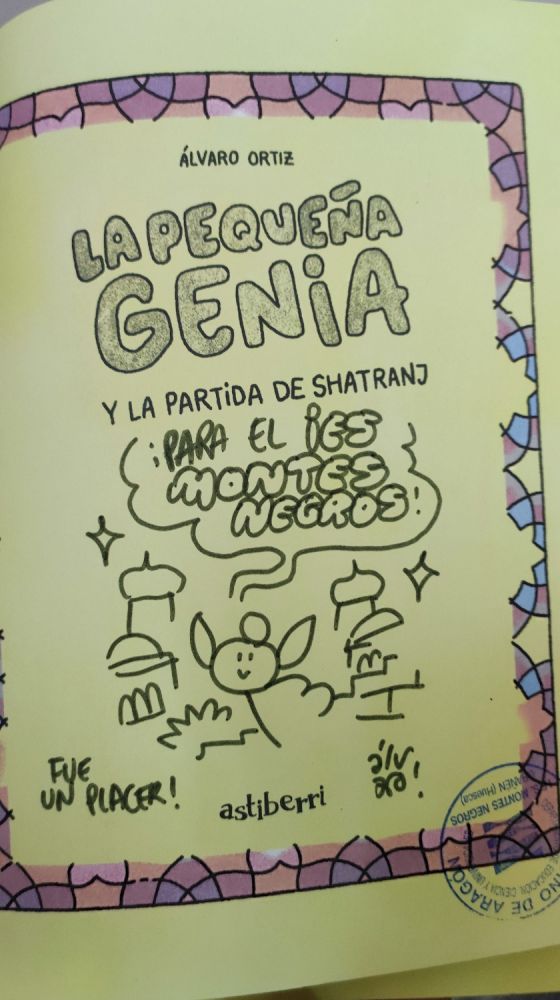 ÁLVARO ORTIZ
LA PEQUEÑA
GENIA
Y LA PARTIDA DE SHATRANJ
¡PARA EL IES
MONTES
NEGROS!
FUE
UN PLACER!
astiberri
álv
aro!
MONTES NEGROS
(Huesca)
EDUCACIÓN, CIENCIA Y
DE ARAGÓN